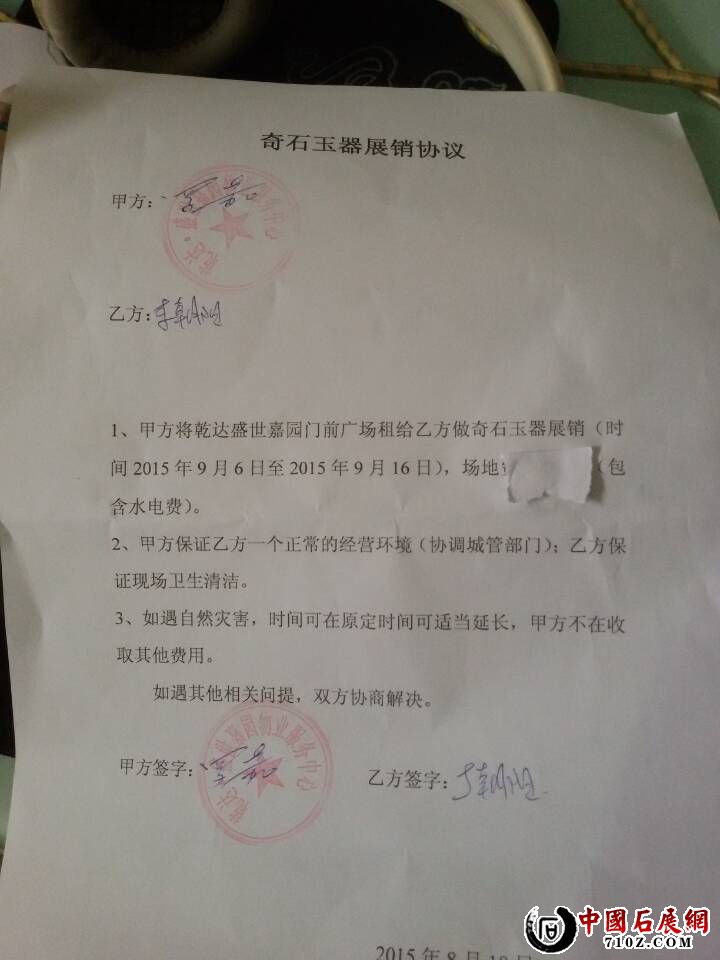 奇石玉器展销协议
甲方：
乙方：
1、甲方将乾达盛世嘉园门前广场租给乙方做奇石玉器展销（时
间 2015 年 9 月 6 日至 2015 年 9 月 16 日），场地 （包
含水电费）。
2、甲方保证乙方一个正常的经营环境（协调城管部门）；乙方保
证现场卫生清洁。
3、如遇自然灾害，时间可在原定时间可适当延长，甲方不在收
取其他费用。
如遇其他相关问提，双方协商解决。
世嘉园物业服务中心
甲方签字： 乙方签字：
2015 年 8 月
中國石展網
710Z.COM